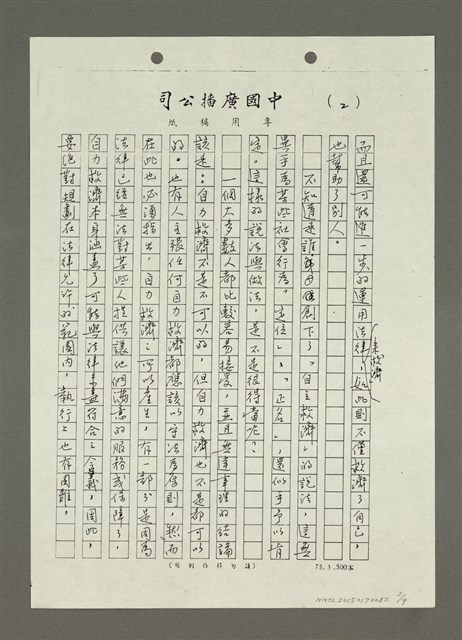 中國廣播公司
(2)
專用稿紙
而且還可能進一步的運用法律來救濟，如此則不僅救濟了自己，
也幫助了別人。
不知道是誰創下了「自主救濟」的說法，這無
異乎為某些社會行為「定位」、「正名」，還似乎予以肯
定。這樣的說法與做法，是不是很得當呢？
一個大多數人都比較容易接受，並且無違事理的結論
該是：自力救濟不是不可以的，但自力救濟也不是都可以
的。也有人主張任何自力救濟都應該以守法為原則，然而
在此也必須指出，自力救濟之所以產生，有一部分是因為
法律已經無法對某些人提供讓他們滿意的服務或保障了，
自力救濟本身涵蓋了可能與法律未盡符合之含義，因此，
要絕對規劃在法律允許的範圍內，執行上也有困難。
(請勿移作別用)
75.3.500本
NMTL20150170082
2/9